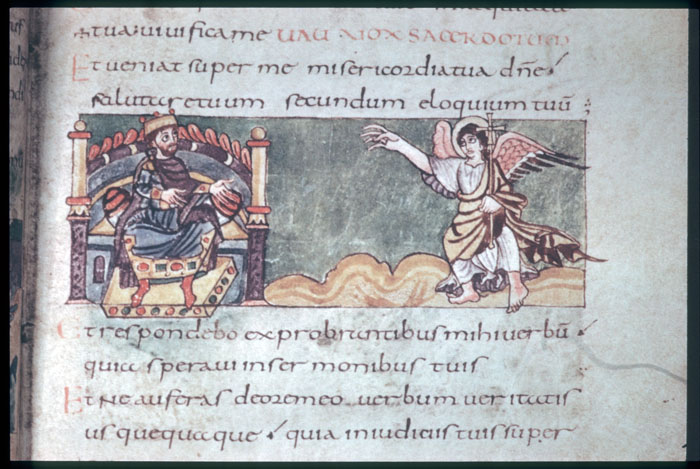 tua: uiuifica me UAU UOX SACERDOTUM
Et ueniat super me misericordia tua dn̄e
salutare tuum secundum eloquium tuū
Et respondebo exprobrantibus mihi uerbū
quia speraui in sermonibus tuis
Et ne auferas de ore meo uerbum ueritatis
usquequaque quia in iudiciis tuis super